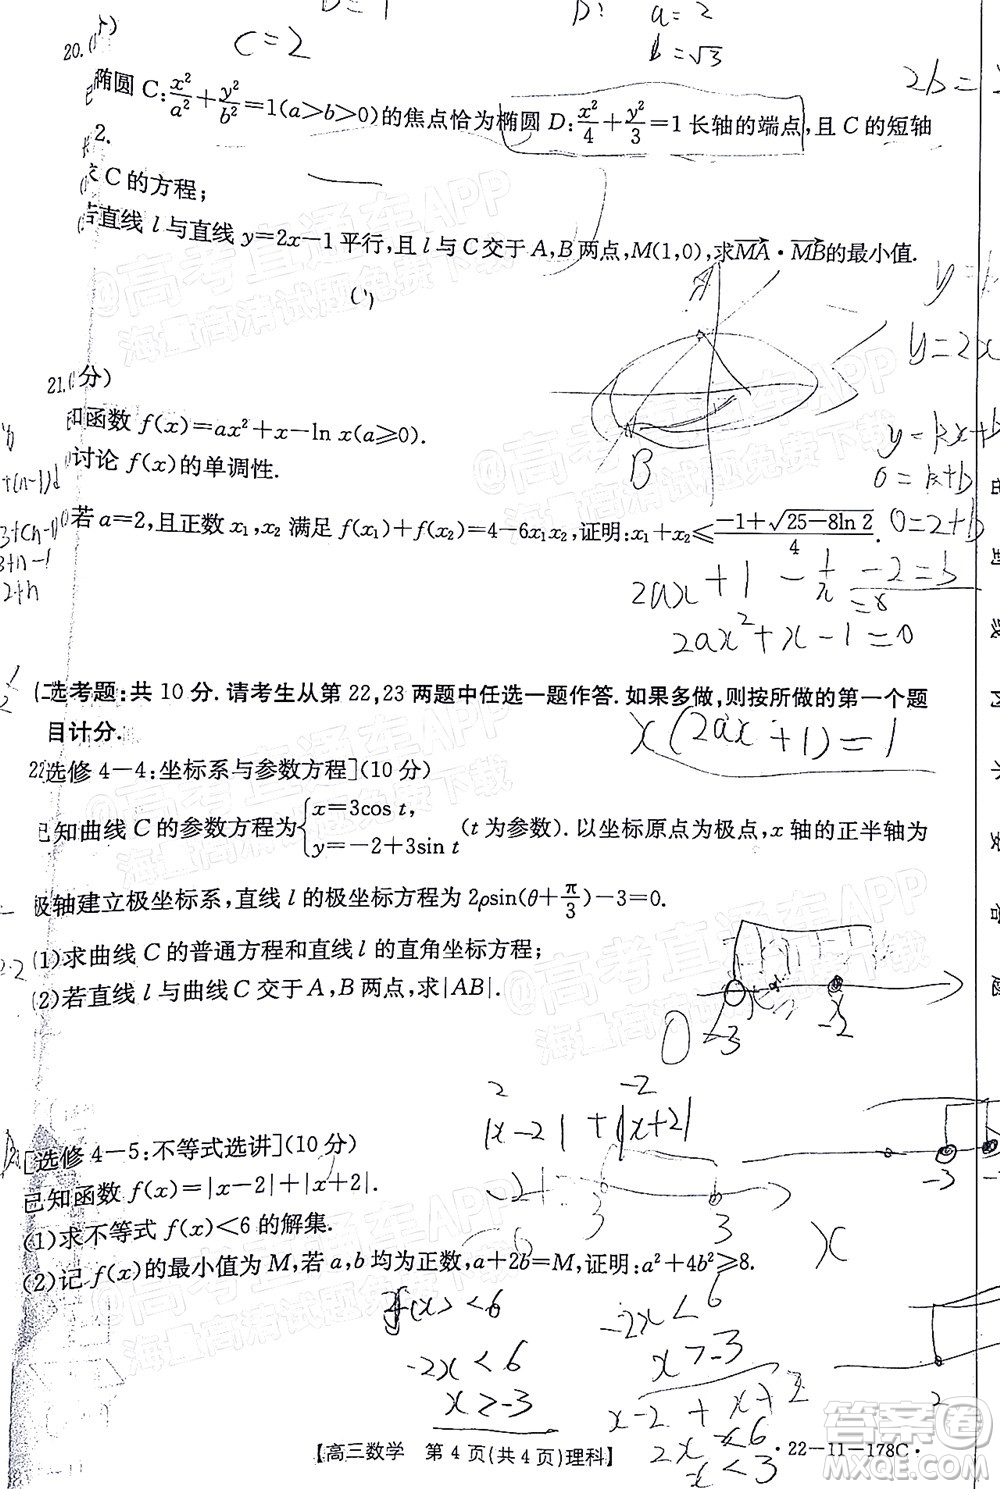 D=1 D: a=2
20. c=2 b=√3
椭圆 C:x²/a²+y²/b²=1(a>b>0)的焦点恰为椭圆 D:x²/4+y²/3=1 长轴的端点,且 C 的短轴
2b=
2.
C 的方程;
直线 l 与直线 y=2x-1 平行,且 l 与 C 交于 A,B 两点,M(1,0),求MA·MB的最小值.
A
y=2x
21. 分)
函数 f(x)=ax²+x-ln x(a≥0).
B
y=kx+b
讨论 f(x)的单调性.
+(n-1)d
0=k+b
若 a=2,且正数 x₁,x₂ 满足 f(x₁)+f(x₂)=4-6x₁x₂,证明:x₁+x₂≤(-1+√(25-8ln 2))/4.
0=2+b
3+(n-1)
3+n-1
2+n
2ax+1-1/x
-2=b
2ax²+x-1=0
选考题:共 10 分.请考生从第 22,23 两题中任选一题作答.如果多做,则按所做的第一个题
目计分.
x(2ax+1)=1
22 选修 4-4:坐标系与参数方程](10 分)
已知曲线 C 的参数方程为{x=3cos t, y=-2+3sin t (t 为参数).以坐标原点为极点,x 轴的正半轴为
极轴建立极坐标系,直线 l 的极坐标方程为 2ρsin(θ+π/3)-3=0.
(1)求曲线 C 的普通方程和直线 l 的直角坐标方程;
(2)若直线 l 与曲线 C 交于 A,B 两点,求|AB|.
-3 -2
2 -2
|x-2|+|x+2|
[选修 4-5:不等式选讲](10 分)
-3
已知函数 f(x)=|x-2|+|x+2|.
(1)求不等式 f(x)<6 的解集.
3
x
(2)记 f(x)的最小值为 M,若 a,b 均为正数,a+2b=M,证明:a²+4b²≥8.
f(x)<6
-2x<6
-2x<6
x>-3
x>-3
x-2+x+2
<6
2x<6
x<3
2
【高三数学 第 4 页(共 4 页)理科】 ·22-11-178C·
@高考直通车APP
海量高清试题免费下载
@高考直通车APP
海量高清试题免费下载
答案圈
MXQE.COM